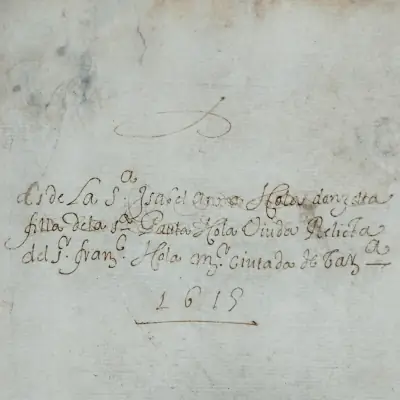 Es de La S.ª Isabel Anna Hola donzella
filla dela s.ª Paula Hola Viuda Relicta
del S.r fran.c Hola m.r Ciutada de Tarª
1615